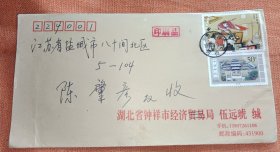 224001
印刷品
江苏省盐城市八十间北区
5-104
陈肇彦 收
湖北省钟祥市经济贸易局 伍远虢 缄
手机:13997261108
邮政编码:431900
50分